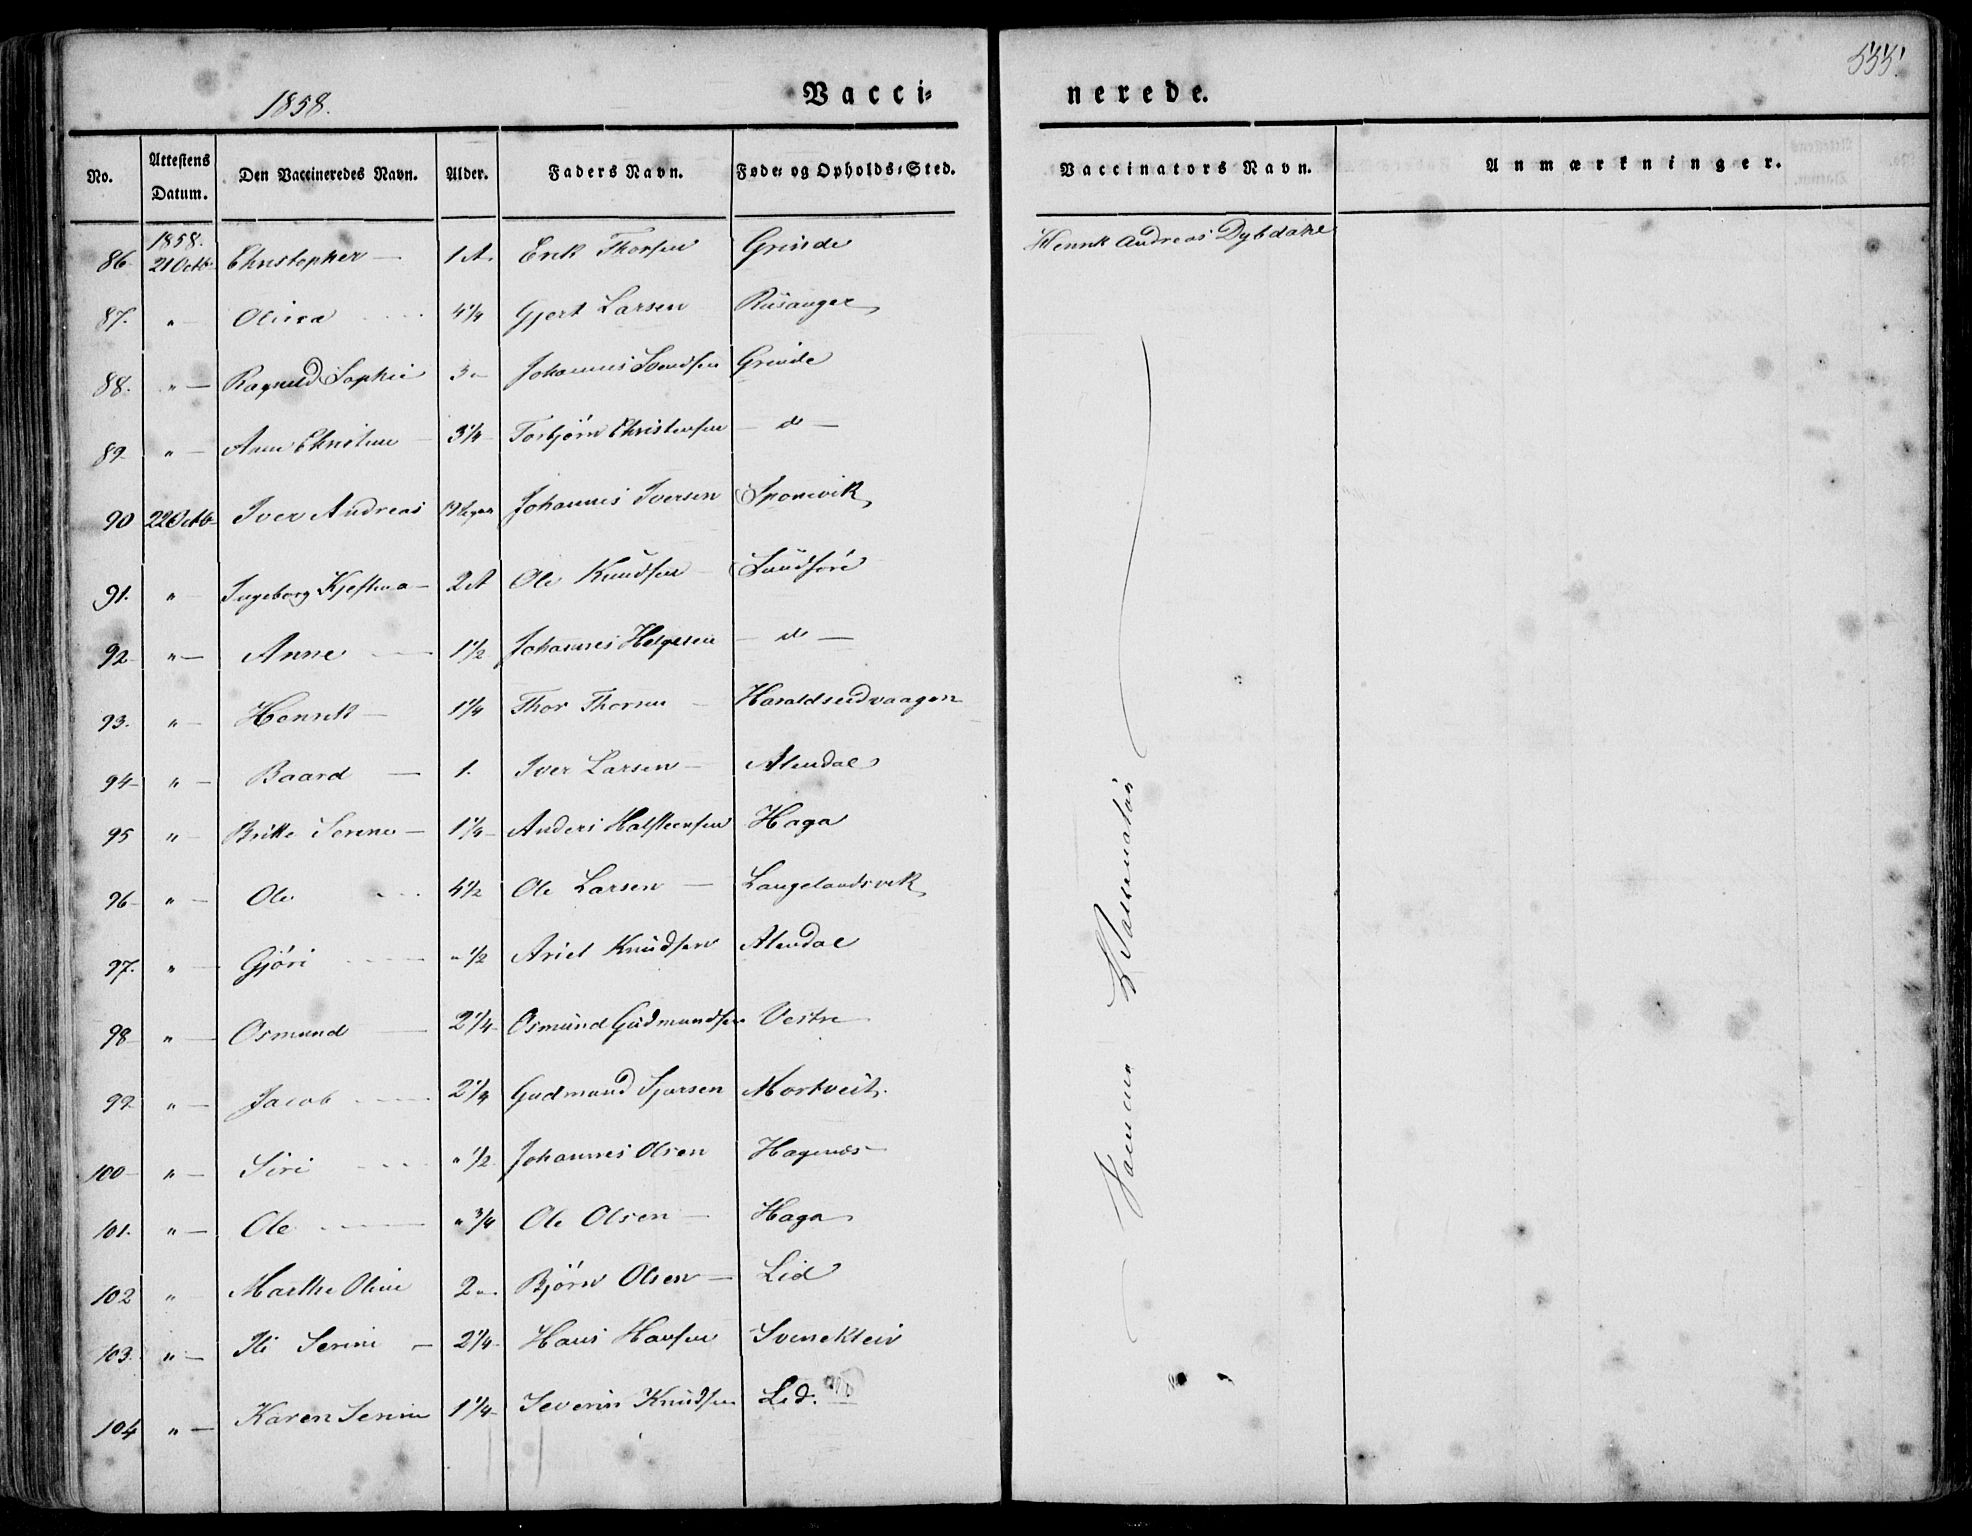 555.
1858.
Vacci-
nerede.
No. Attestens Datum. Den Vaccineredes Navn. Alder. Faders Navn. Føde- og Opholds-Sted. Vaccinators Navn. Anmærkninger.
1858.
86 21 Octb Christopher — 1 A Erik Thorsen Grinde Henrik Andreas Dybdahl
87. " Olina 4 1/4 Gjert Larsen
88. " — Ragnild Sophie 3 " Johannes Svendsen Grinde
89 " — Ane Christine 3 1/4 Torbjørn Christensen — do —
90 22 Octb Iver Andreas Johannes Iversen
91. " Ingeborg — 2 A Ole Knudsen
92 " — Anne 1 1/2 Johannes Helgesen — do —
93. " — Henrik — 1 1/4 Thor Thorsen — Haraldseidvaagen
94 " — Baard — 1. Iver Larsen — Alendal
95 " — Britte Serine — 1 1/4 Anders Halsteensen Haga
96 " — Ole 4 1/2 Ole Larsen — Langelandsvik
97. " — Gjøri " 1/2 Knudsen Alendal
98 " — Osmund — 2 1/4 Osmund Gudmundsen Vestre
99 " — Jacob 2 1/4 Gudmund Mortveit.
100 " — Siri " 1/2 Johannes Olsen
101. " — Ole " 3/4 Ole Olsen — Haga
102 " Marthe Oline 2 " Bjørn Olsen — Lid
103. " — Serine — 2 1/4 Hans Hansen
104 " — Karen Serine 1 1/4 Severin Knudsen Lid.